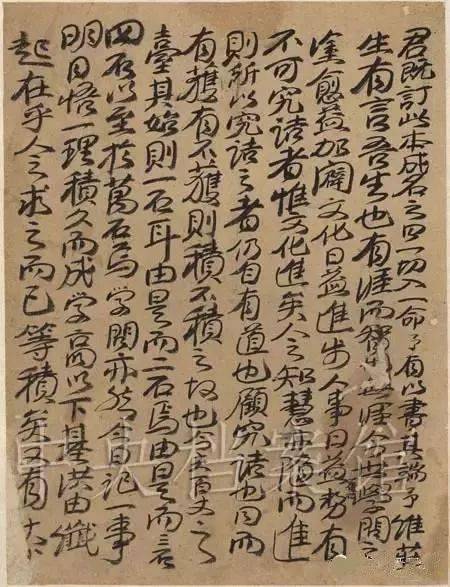 君既訂此本成名之曰一切入一命予有以書其端予維莊
生有言吾生也有涯而智也無涯今世學問之
塗愈益加闢文化日益進步人事日益勢有
不可究詰者惟文化進矣人之智慧亦隨而進
則所以究詰之者仍自有道也顧究詰也同而
有獲有不獲則積不積之故也今夫百丈之
臺其始則一石耳由是而二石焉由是而三石
四石以至於萬石焉學問亦然今日記一事
明日悟一理積久而成學高以下基洪由纖
起在乎人之求之而已等積矣又有大小
中央档案馆